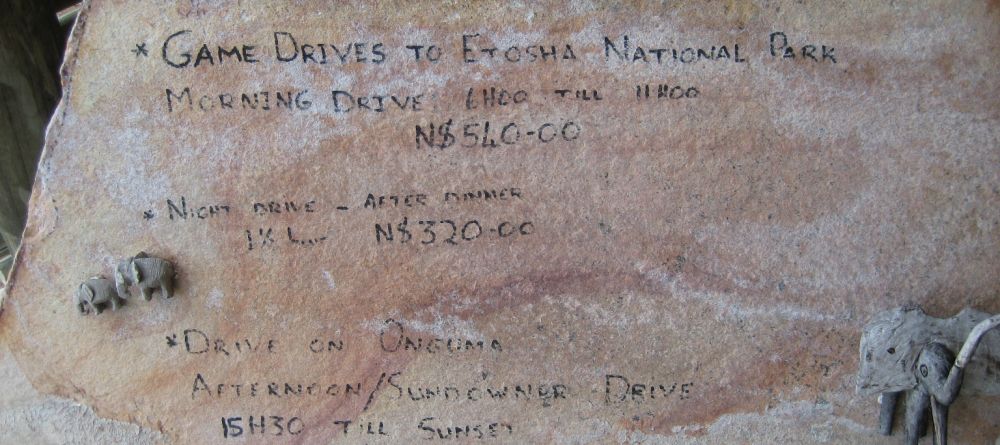 * GAME DRIVES TO ETOSHA NATIONAL PARK
MORNING DRIVE 6H00 TILL 11H00
N$540-00
* NIGHT DRIVE - AFTER DINNER
1½ N$320-00
*DRIVE ON ONGUMA
AFTERNOON/SUNDOWNER DRIVE
15H30 TILL SUNSET